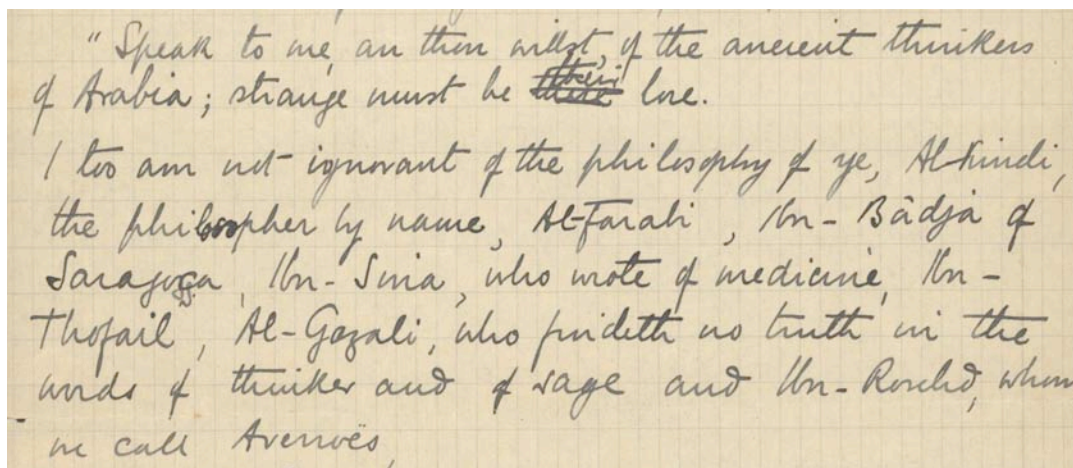 "Speak to me, an thou willst, of the ancient thinkers
of Arabia; strange must be their lore.
I too am not ignorant of the philosophy of ye, Al-Kindi,
the philosopher by name, Al-Farabi, Ibn-Bâdja of
Saragoça, Ibn-Sina, who wrote of medicine, Ibn-
Thofail, Al-Gazali, who findeth no truth in the
words of thinker and of sage and Ibn-Roschd, whom
we call Averroës,